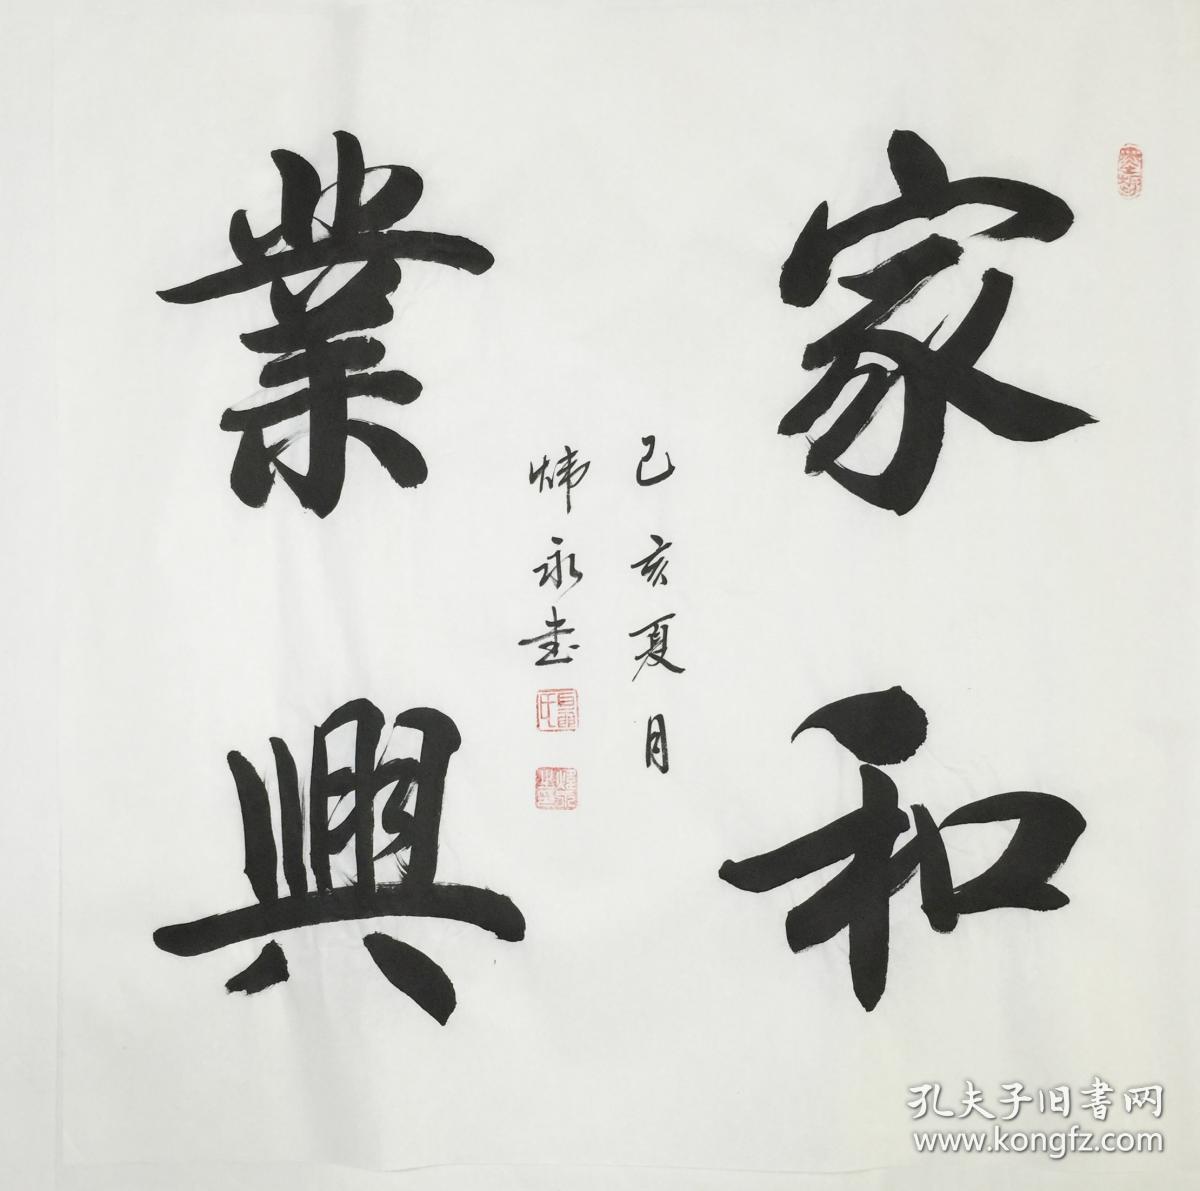 家和
業興
己亥夏月
炜永书
孔夫子旧書网
www.kongfz.com